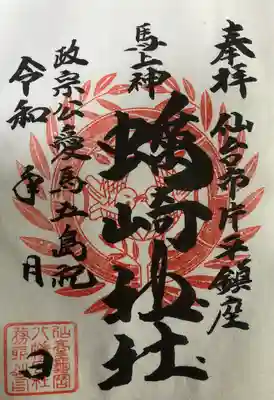 奉拝
仙台市片平鎮座
馬上神
蠣崎神社
政宗公愛馬五島祀
令和 年 月 日
仙臺龜岡
八幡神社
務所之印